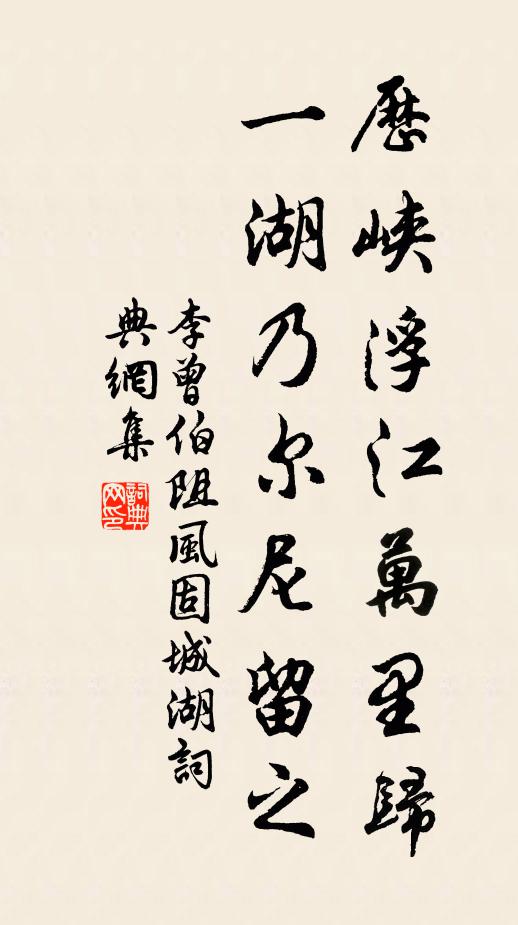 歷峽浮江萬里歸
一湖乃尔尼留之
李曾伯阻風固城湖詞
典網集
詞典網印